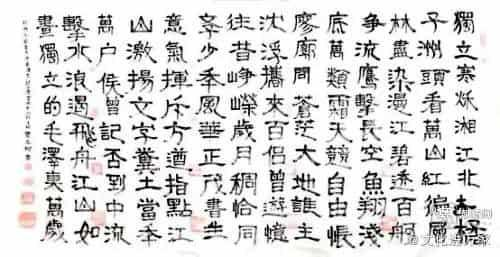 獨立寒秋湘江北去橘
子洲頭看萬山紅徧層
林盡染漫江碧透百舸
争流鷹擊長空魚翔淺
底萬類霜天競自由悵
廖廓問蒼茫大地誰主
沈浮攜來百侣曾遊憶
往昔崢嶸歲月稠恰同
學少年風華正茂書生
意氣揮斥方遒指點江
山激揚文字糞土當年
万户侯曾記否到中流
擊水浪遏飛舟江山如
畫獨立的毛澤東萬歲